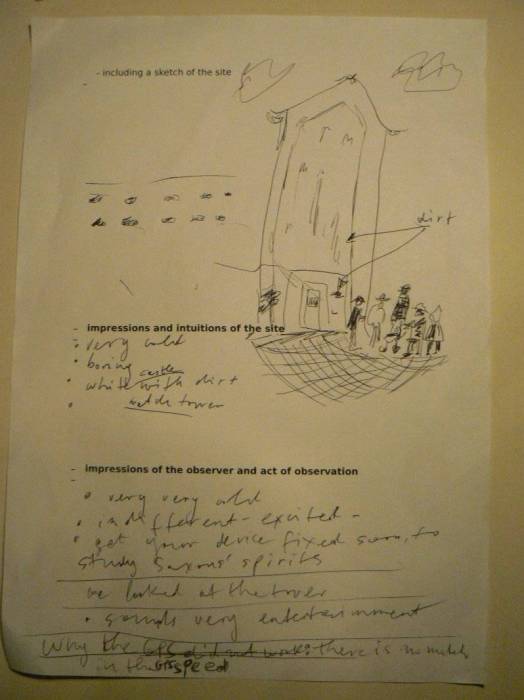 - including a sketch of the site
-
dirt
- impressions and intuitions of the site
• very cold
• boring castle
• white with dirt
• watch tower
- impressions of the observer and act of observation
-
• very very cold
• indifferent - excited -
• get your device fixed soon, to
study Saxons' spirits
we looked at the tower
• sounds very entertainment
Why the GPS did not work: there is no match
in the GPS speed